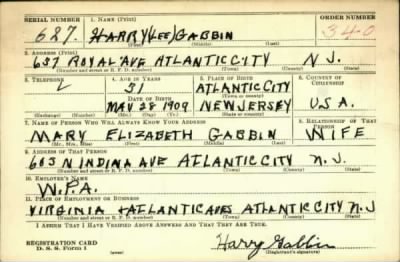 SERIAL NUMBER 1. NAME (Print) ORDER NUMBER
627. HARRY (LEE) GABBIN 340
(First) (Middle) (Last)
2. ADDRESS (Print)
637 ROYAL AVE ATLANTIC CITY N.J.
(Number and street or R. F. D. number) (Town) (County) (State)
3. TELEPHONE 4. AGE IN YEARS 5. PLACE OF BIRTH 6. COUNTRY OF CITIZENSHIP
31 ATLANTIC CITY
DATE OF BIRTH (Town or county)
MAY 28 1909 NEW JERSEY U.S.A.
(Mo.) (Day) (Yr.) (State or country)
7. NAME OF PERSON WHO WILL ALWAYS KNOW YOUR ADDRESS 8. RELATIONSHIP OF THAT PERSON
MARY ELIZABETH GABBIN WIFE
(Mr., Mrs., Miss) (First) (Middle) (Last)
9. ADDRESS OF THAT PERSON
603 N INDINA AVE ATLANTIC CITY N.J.
(Number and street or R. F. D. number) (Town) (County) (State)
10. EMPLOYER'S NAME
W.P.A.
11. PLACE OF EMPLOYMENT OR BUSINESS
VIRGINIA + ATLANTIC AVES ATLANTIC CITY N.J
(Number and street or R. F. D. number) (Town) (County) (State)
I AFFIRM THAT I HAVE VERIFIED ABOVE ANSWERS AND THAT THEY ARE TRUE.
REGISTRATION CARD
D. S. S. Form 1 Harry Gabbin
(Registrant's signature)